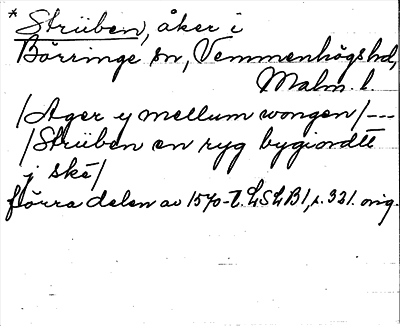 * Strüben, åker i
Börringe sn, Vemmenhögs hd,
Malm. l.
/Ager y mellum wongen/---
/Strüben en ryg bygiordtt
j ské/
förra delen av 1570-t. LSLB1, s. 321. orig.